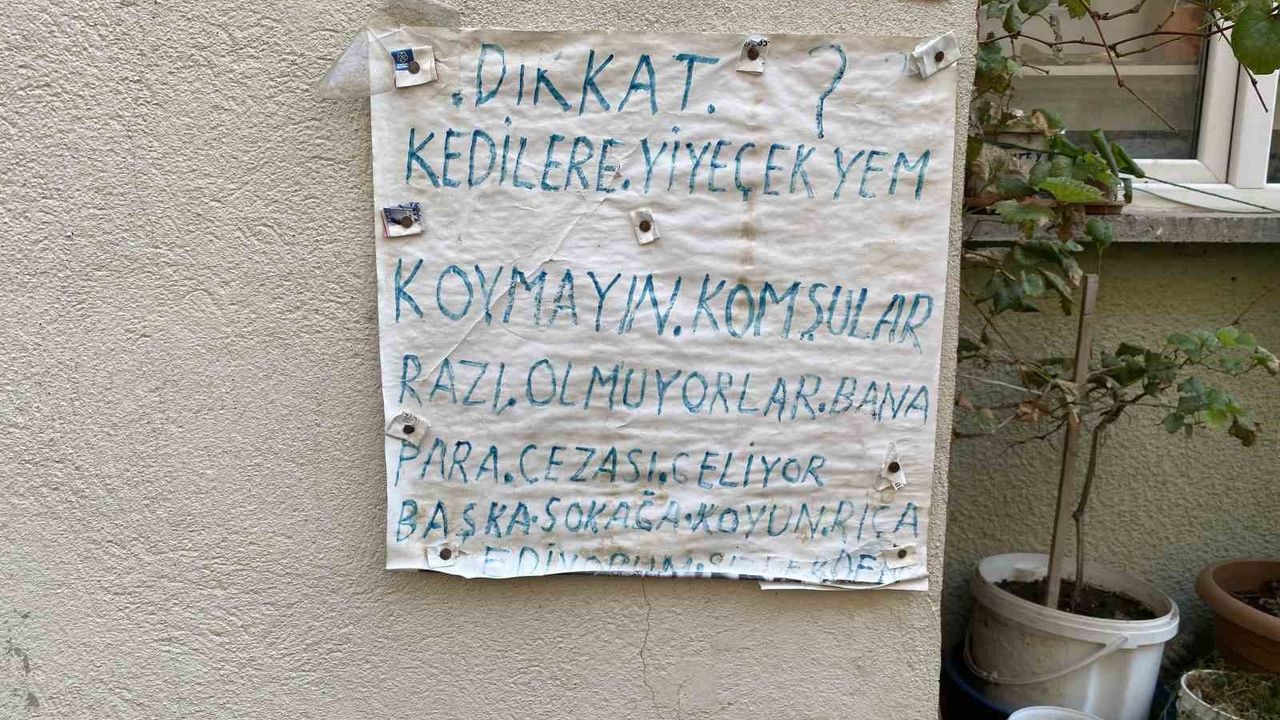 .DİKKAT. ?
KEDİLERE.YİYEÇEK YEM
KOYMAYIN.KOMŞULAR
RAZI.OLMUYORLAR.BANA
PARA.CEZASI.GELİYOR
BAŞKA.SOKAĞA.KOYUN.RİCA
EDİYORUM.SİZLERDEN